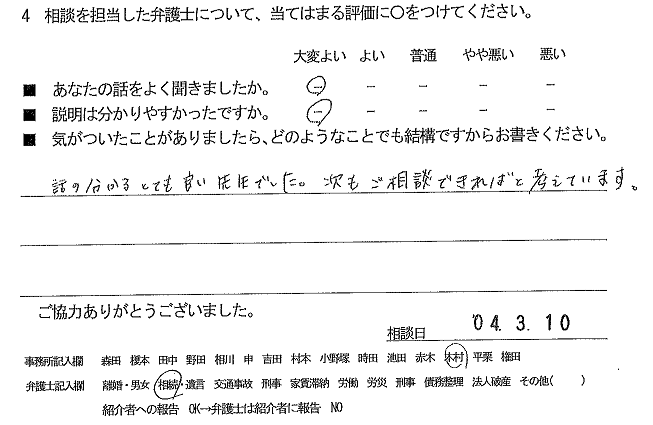 4 相談を担当した弁護士について、当てはまる評価に○をつけてください。
大変よい よい 普通 やや悪い 悪い
■ あなたの話をよく聞きましたか。 － － － － －
■ 説明は分かりやすかったですか。 － － － － －
■ 気がついたことがありましたら、どのようなことでも結構ですからお書きください。
話の分かるとても良い先生でした。次もご相談できればと考えています。
ご協力ありがとうございました。
相談日 '04. 3. 10
事務所記入欄 森田 榎本 田中 野田 相川 申 吉田 村本 小野塚 時田 池田 赤木 木村 平栗 権田
弁護士記入欄 離婚・男女 相続・遺言 交通事故 刑事 家賃滞納 労働 労災 刑事 債務整理 法人破産 その他( )
紹介者への報告 OK→弁護士は紹介者に報告 NO